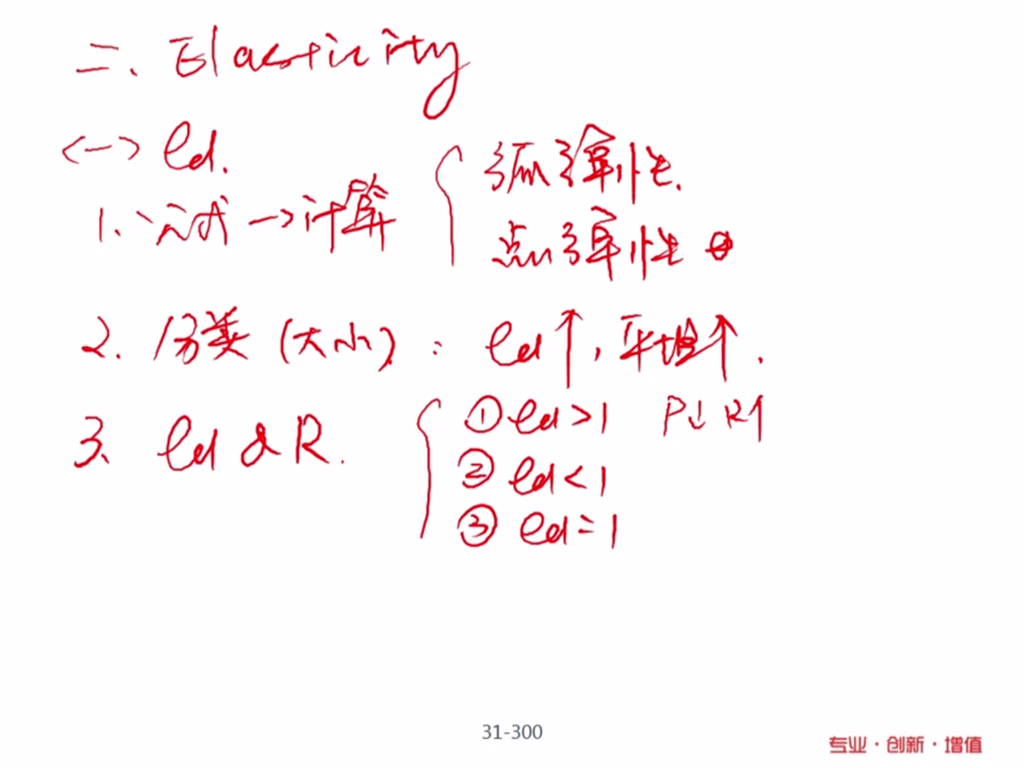 二、Elasticity
<一> ed.
1、公式 → 计算 { 弧弹性.
点弹性
2. 分类 (大小) : ed↑, 平坦↑.
3、ed & R. { ① ed>1 P↓ R↑
② ed<1
③ ed=1
31-300
专业·创新·增值